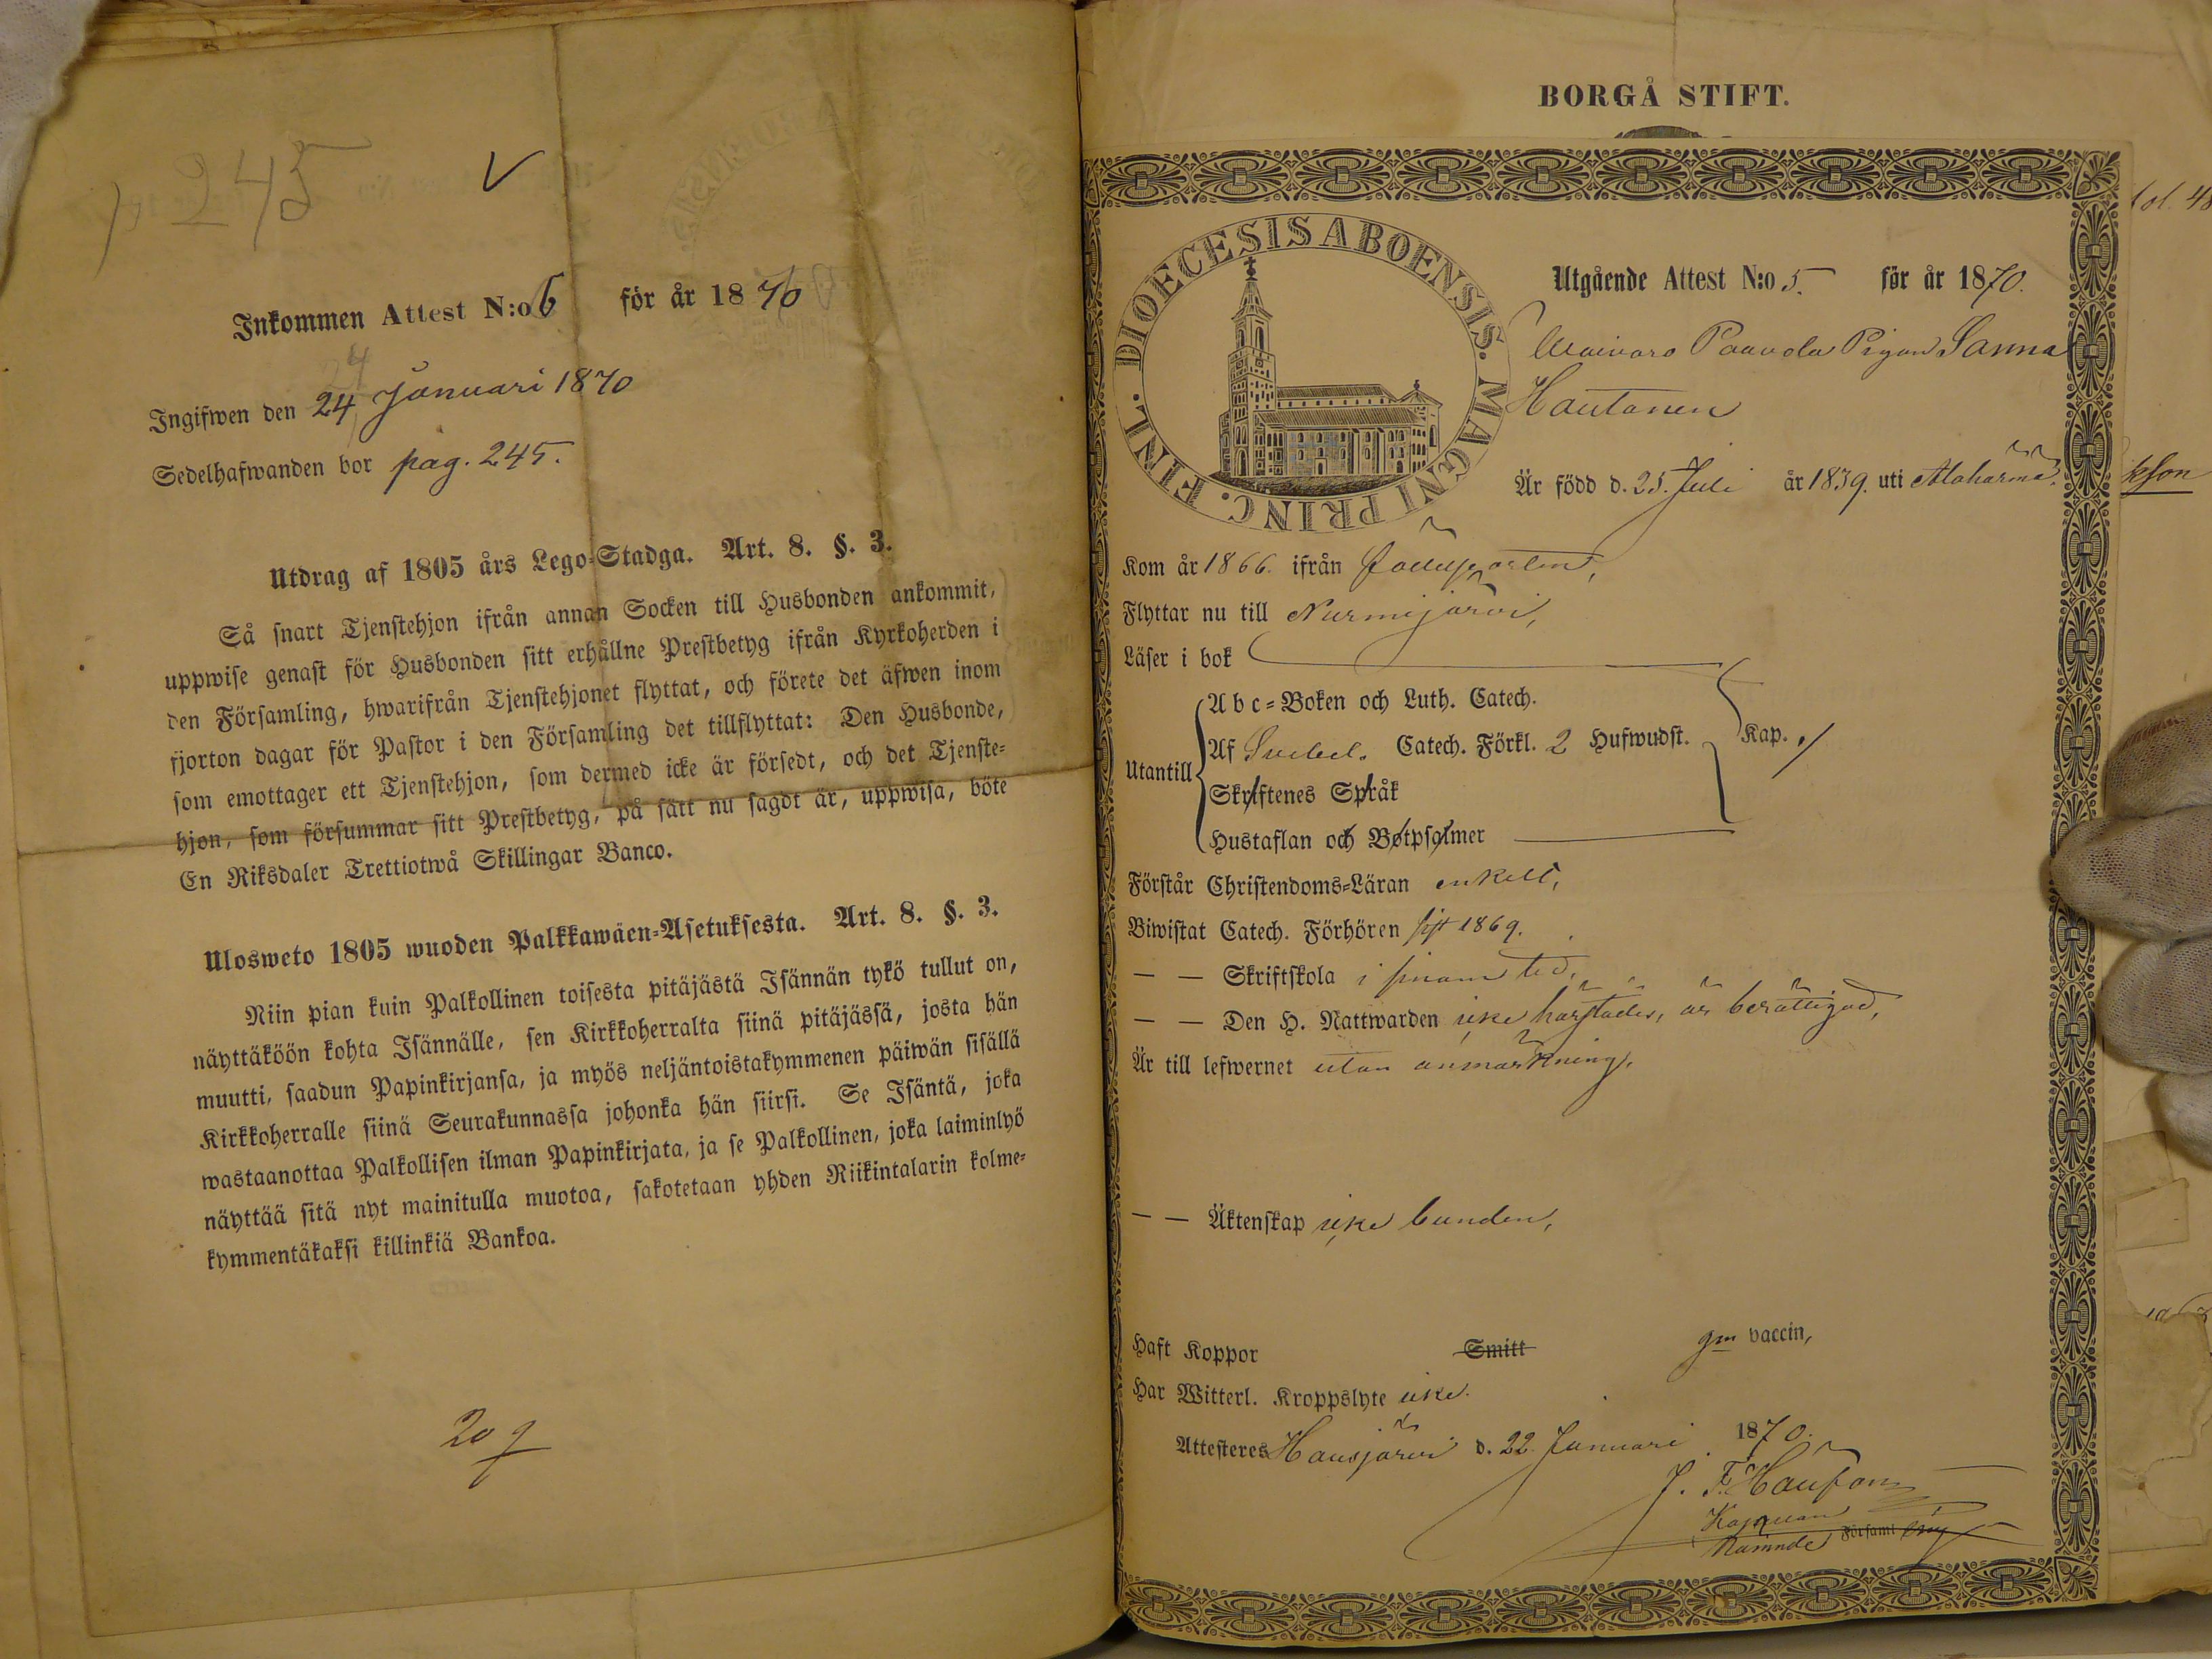 p 245
Inkommen Attest N:o 6 för år 1870
24
Ingifwen den 24 Januari 1870
Sedelhafwanden bor pag. 245.
Utdrag af 1805 års Lego-Stadga. Art. 8. §. 3.
Så snart Tjenstehjon ifrån annan Socken till Husbonden ankommit,
uppwise genast för Husbonden sitt erhållne Prestbetyg ifrån Kyrkoherden i
den Församling, hwarifrån Tjenstehjonet flyttat, och förete det äfwen inom
fjorton dagar för Pastor i den Församling det tillflyttat: Den Husbonde,
som emottager ett Tjenstehjon, som dermed icke är försedt, och det Tjenste-
hjon, som försummar sitt Prestbetyg, på sätt nu sagdt är, uppwisa, böte
En Riksdaler Trettiotwå Skillingar Banco.
Ulosweto 1805 wuoden Palkkawäen-Asetuksesta. Art. 8. §. 3.
Niin pian kuin Palkollinen toisesta pitäjästä Isännän tykö tullut on,
näyttäköön kohta Isännälle, sen Kirkkoherralta siinä pitäjässä, josta hän
muutti, saadun Papinkirjansa, ja myös neljäntoistakymmenen päiwän sisällä
Kirkkoherralle siinä Seurakunnassa johonka hän siirsi. Se Isäntä, joka
wastaanottaa Palkollisen ilman Papinkirjata, ja se Palkollinen, joka laiminlyö
näyttää sitä nyt mainitulla muotoa, sakotetaan yhden Riikintalarin kolme-
kymmentäkaksi killinkiä Bankoa.
209
BORGÅ STIFT.
FINL. DIOECESIS ABOENSIS. MAGNI PRINC.
Utgående Attest N:o 5. för år 1870.
Paavola Pigan Sanna
Hautanen
Är född d. 25. Juli år 1839. uti Alahärmä.
Kom år 1866. ifrån
Flyttar nu till Nurmijärvi,
Läser i bok
Utantill
Abc-Boken och Luth. Catech.
Af Svebel. Catech. Förkl. 2 Hufwudst. Kap. /
Skriftenes Språk
Hustaflan och Botpsalmer
Förstår Christendoms-Läran enkelt,
Biwistat Catech. Förhören sist 1869.
— — Skriftskola i sinom tid,
— — Den H. Nattwarden icke härstädes, är berättigad,
Är till lefwernet utan anmärkning,
— — Äktenskap icke bunden,
Haft Koppor Smitt gm vaccin,
Har Witterl. Kroppslyte icke.
Attesteres Hausjärvi d. 22. Januari 1870.
J. F.
Församl
kson